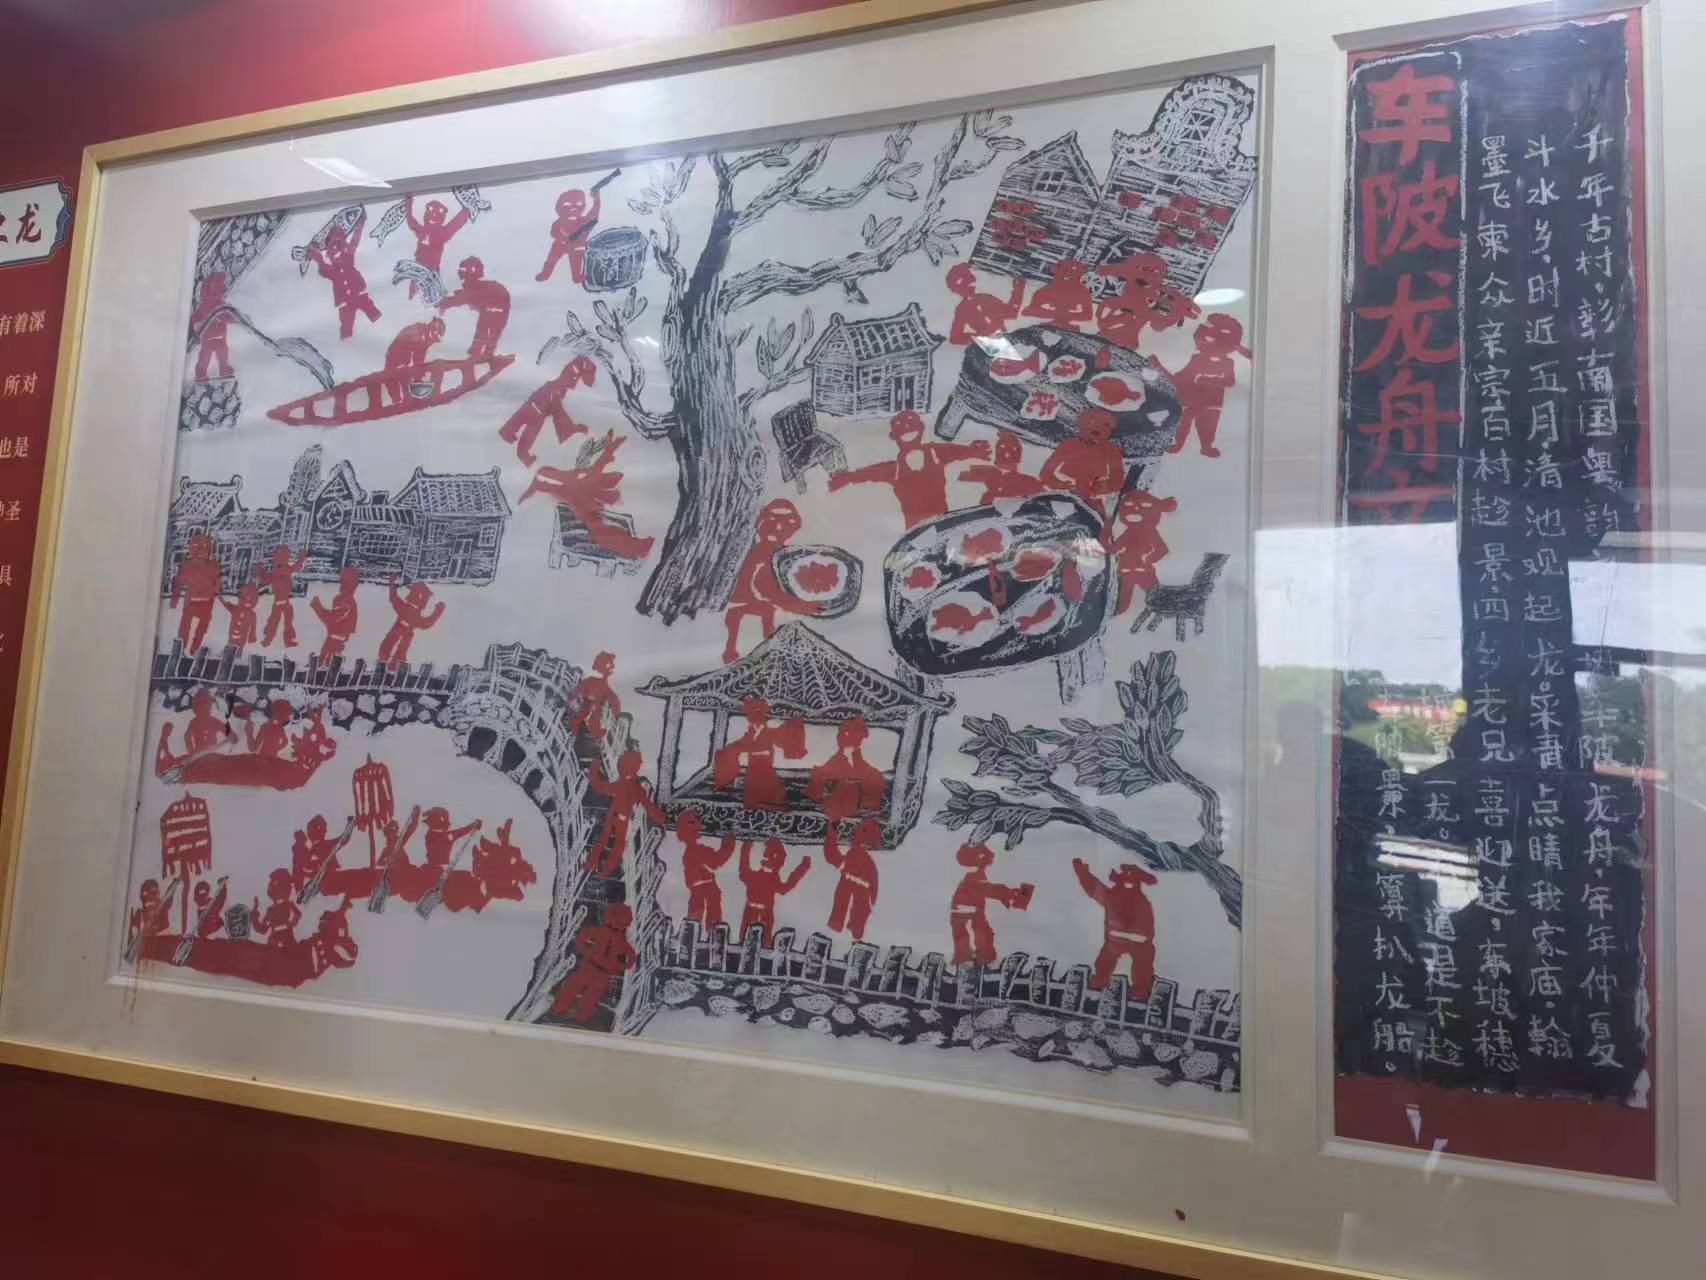 之龙
有着深
所对
也是
圣
车陂龙舟
千年古村，彰南国粤韵，车陂龙舟，年年仲夏
斗水乡，时近五月，清池观起龙。采青点睛我家庙，翰
墨飞柬众亲宗百村趁景，四乡老兄喜迎送，东坡穗
一龙。道是不趁
车陂景，算扒龙船。